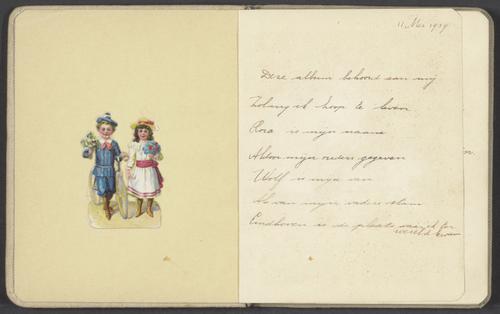 11 Mei 1939
Deze album behoord aan mij
Zolang ik hoop te leven
Rosa is mijn naam
Als door mijn ouders gegeven
Wolf is mijn van
Als van mijn vaders stam
Eindhoven is de plaats waar ik
wereld kwam